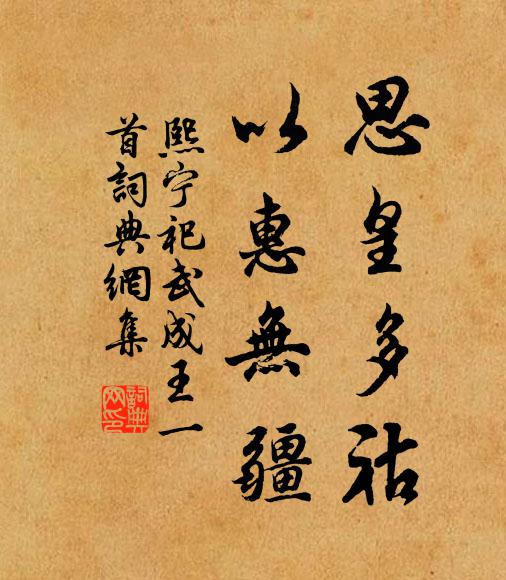 思皇多祜
以惠無疆
熙宁祀武成王一
首詞典網集
詞典
网印